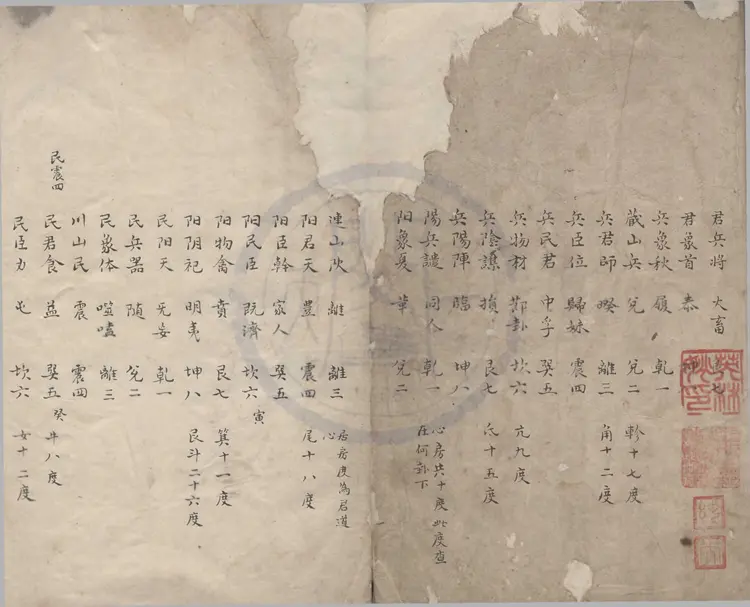 君兵将 大畜 艮七
君象首 泰 坤
兵象秋 履 乾一
藏山兵 兌 兌二 軫十七度
兵君師 睽 離三 角十二度
兵臣位 歸妹 震四
兵民君 中孚 巽五
兵物材 節卦 坎六 亢九度
兵陰謀 損 艮七 氐十五度
兵陽陣 臨 坤八
陽兵譴 同人 乾一 心房共十度此度查
在何卦下
阳象夏 革 兌二
連山陽 離 離三
阳君天 豊 震四 尾十八度
阳臣幹 家人 巽五
阳民臣 既濟 坎六 寅
阳物禽 賁 艮七 箕十一度
阳阴祀 明夷 坤八 艮斗二十六度
民阳天 无妄 乾一
民兵器 随 兌二
民象体 噬嗑 離三
川山民 震 震四
民震四
民君食 益 巽五 癸 牛八度
民臣力 屯 坎六 女十二度